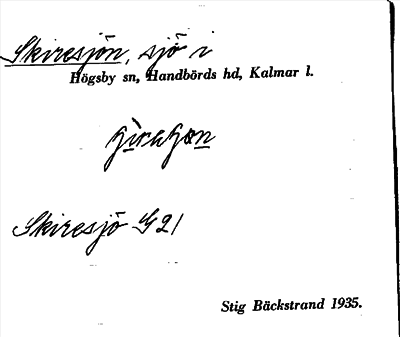 Skiresjön, sjö i
Högsby sn, Handbörds hd, Kalmar l.
Skiresjö G21
Stig Bäckstrand 1935.